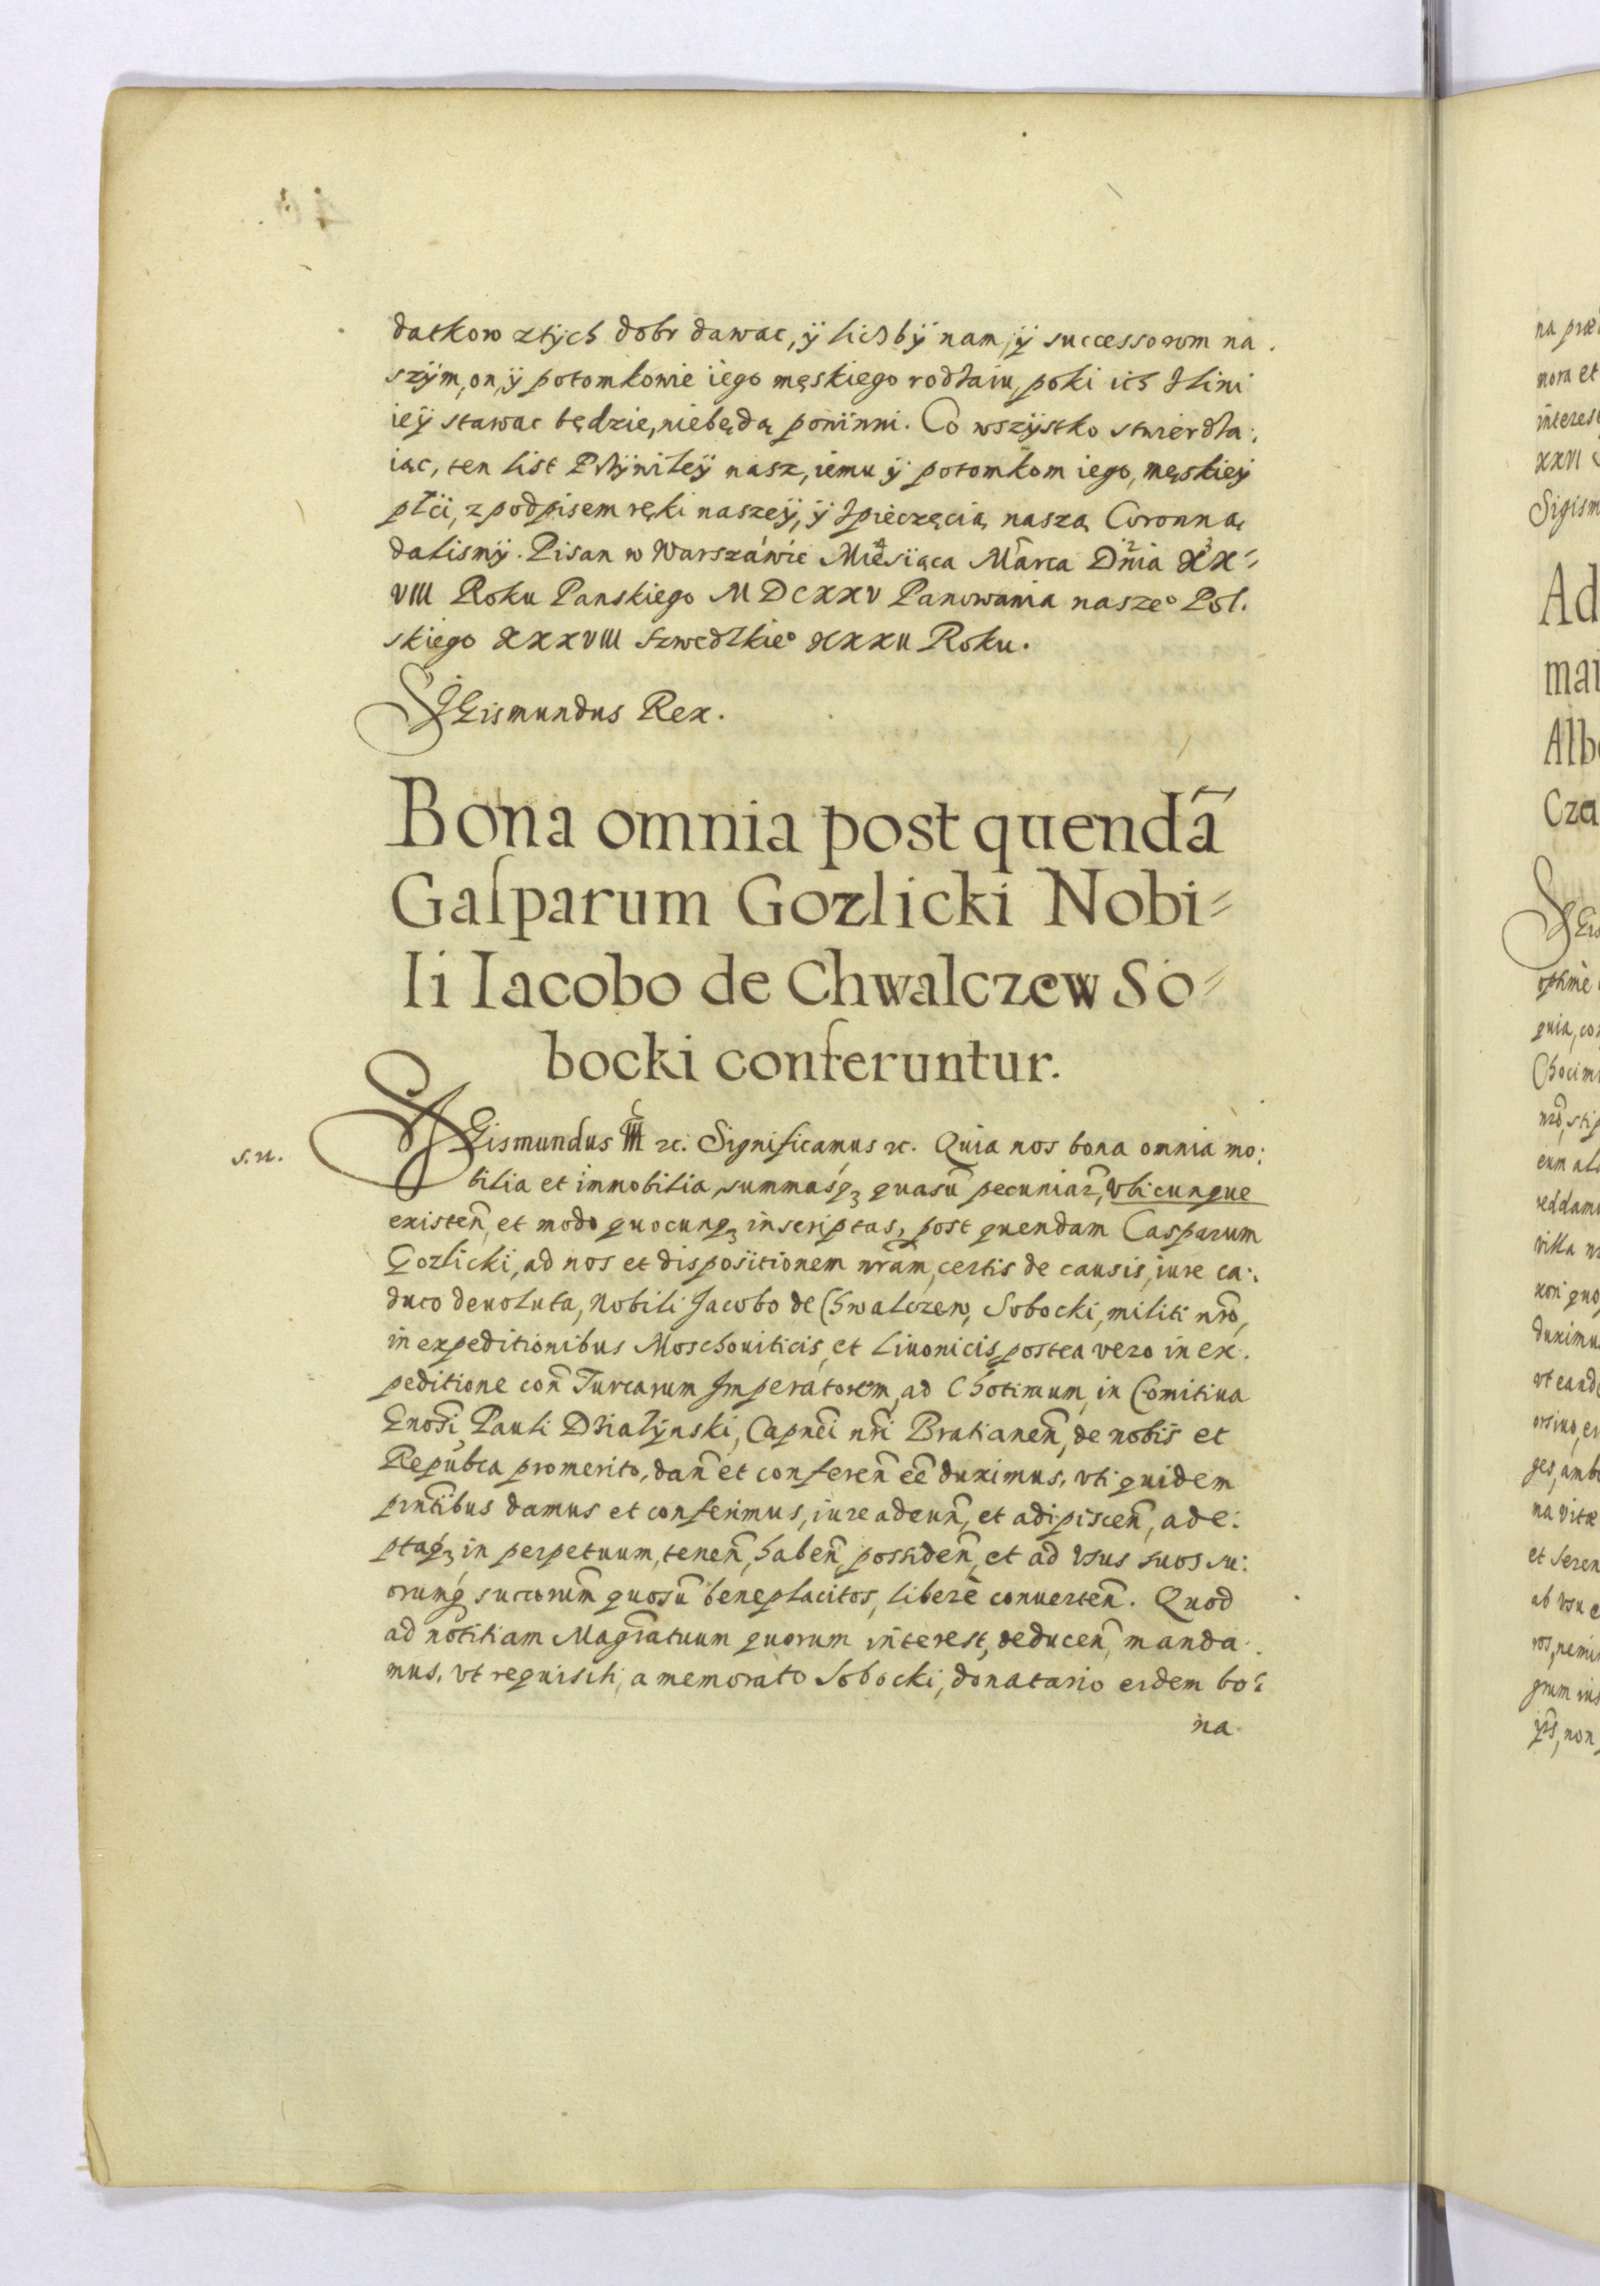 datkow z tych dobr dawac, ÿ liczbÿ nam, ÿ successorom na
szÿm, on, ÿ potomkowie iego męskiego rodzaiu, poki ich z lini
ieÿ stawac będzie, niebędą powinni. Co wszÿstko stwierdza:
iąc, ten list Przÿwileÿ nasz, iemu ÿ potomkom iego, męskieÿ
płci, z podpisem ręki naszeÿ, ÿ z pieczęcią naszą Coronną
dalismÿ. Pisan w Warszawie Miesiąca Marca Dnia XX=
VIII Roku Panskiego MDCXXV Panowania nasze° Pol.
skiego XXXVIII Szwedzkie° XXXII Roku.
SIGismundus Rex.
Bona omnia post quendã
Gasparum Gozlicki Nobi=
li Iacobo de Chwalczew So=
bocki conferuntur.
SIGismundus III etc. Significamus etc. Quia nos bona omnia mo:
s.n.
bilia et immobilia, summasq₃ quasũ pecuniar̃, vbicunque
existeñ, et modo quocunq₃ inscriptas, post quendam Casparum
Gozlicki, ad nos et dispositionem nr̃am, certis de causis, iure ca:
duco deuoluta, Nobili Jacobo de Chwalczew, Sobocki, militi nr̃o,
in expeditionibus Moschouiticis, et Liuonicis, postea vero in ex:
peditione coñ Turcarum Imperatorem, ad Chotimum, in Comitiua
Gnosi Pauli Działÿnski, Capnei nr̃i Bratianeñ, de nobis et
Repubca promerito, dañ et confereñ eẽ duximus, vti quidem
pñtibus damus et conferimus, iure adeuñ, et adipisceñ, ade:
ptaq₃ in perpetuum, teneñ, habeñ, possideñ, et ad vsus suos su:
orumq₃ succorum quosũ beneplacitos, liberè conuerteñ. Quod
ad notitiam Magratuum quorum interest, deduceñ, manda:
mus, vt requisiti, a memorato Sobocki, donatario eidem bo:
na